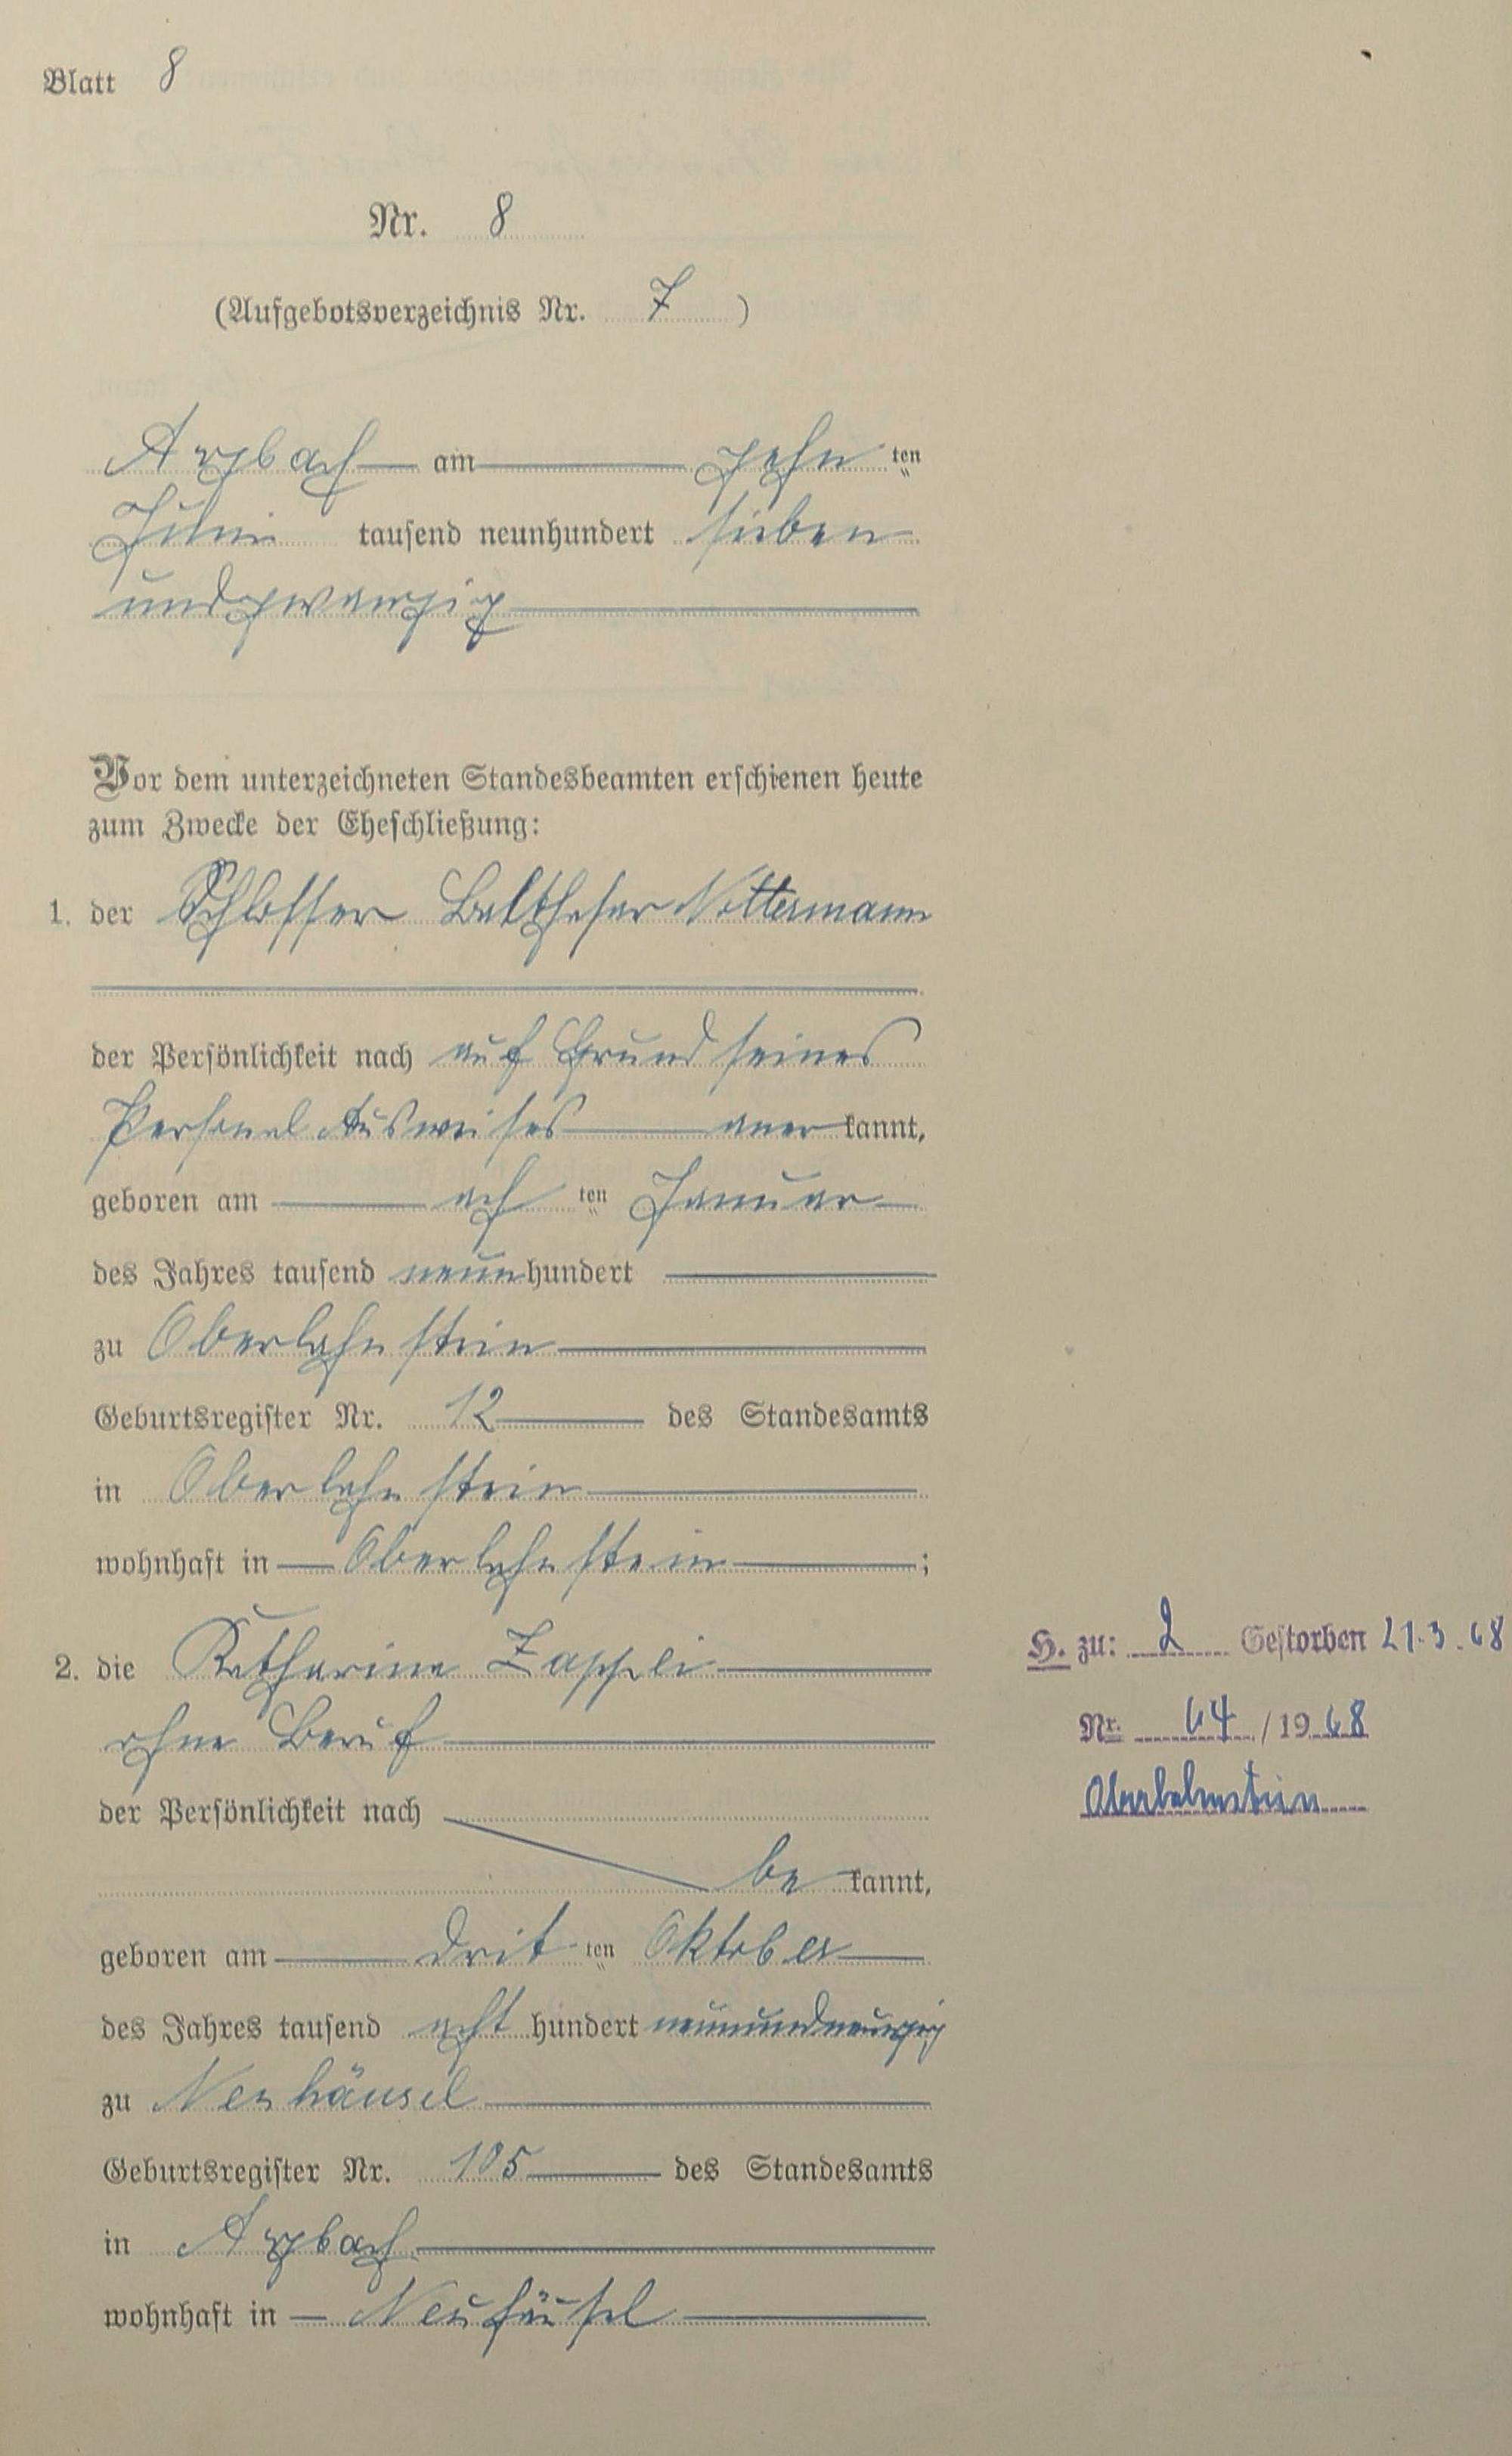 Blatt 8
Nr. 8
(Aufgebotsverzeichnis Nr. 7 )
Arzbach am zehn ten
Juni tausend neunhundert sieben
undzwanzig
Vor dem unterzeichneten Standesbeamten erschienen heute
zum Zwecke der Eheschließung:
1. der Schlosser Balthasar Nottermann
der Persönlichkeit nach auf Grund seines
Personal Ausweises aner kannt,
geboren am ach ten Januar
des Jahres tausend neun hundert
zu Oberlahnstein
Geburtsregister Nr. 12 des Standesamts
in Oberlahnstein
wohnhaft in Oberlahnstein ;
2. die Katharina Zappei
ohne Beruf
der Persönlichkeit nach
be kannt,
geboren am drit ten Oktober
des Jahres tausend acht hundert neunundneunzig
zu Neuhäusel
Geburtsregister Nr. 105 des Standesamts
in Arzbach
wohnhaft in Neuhäusel
H. zu: 2 Gestorben 21.3.68
Nr. 64 / 19 68
Oberlahnstein